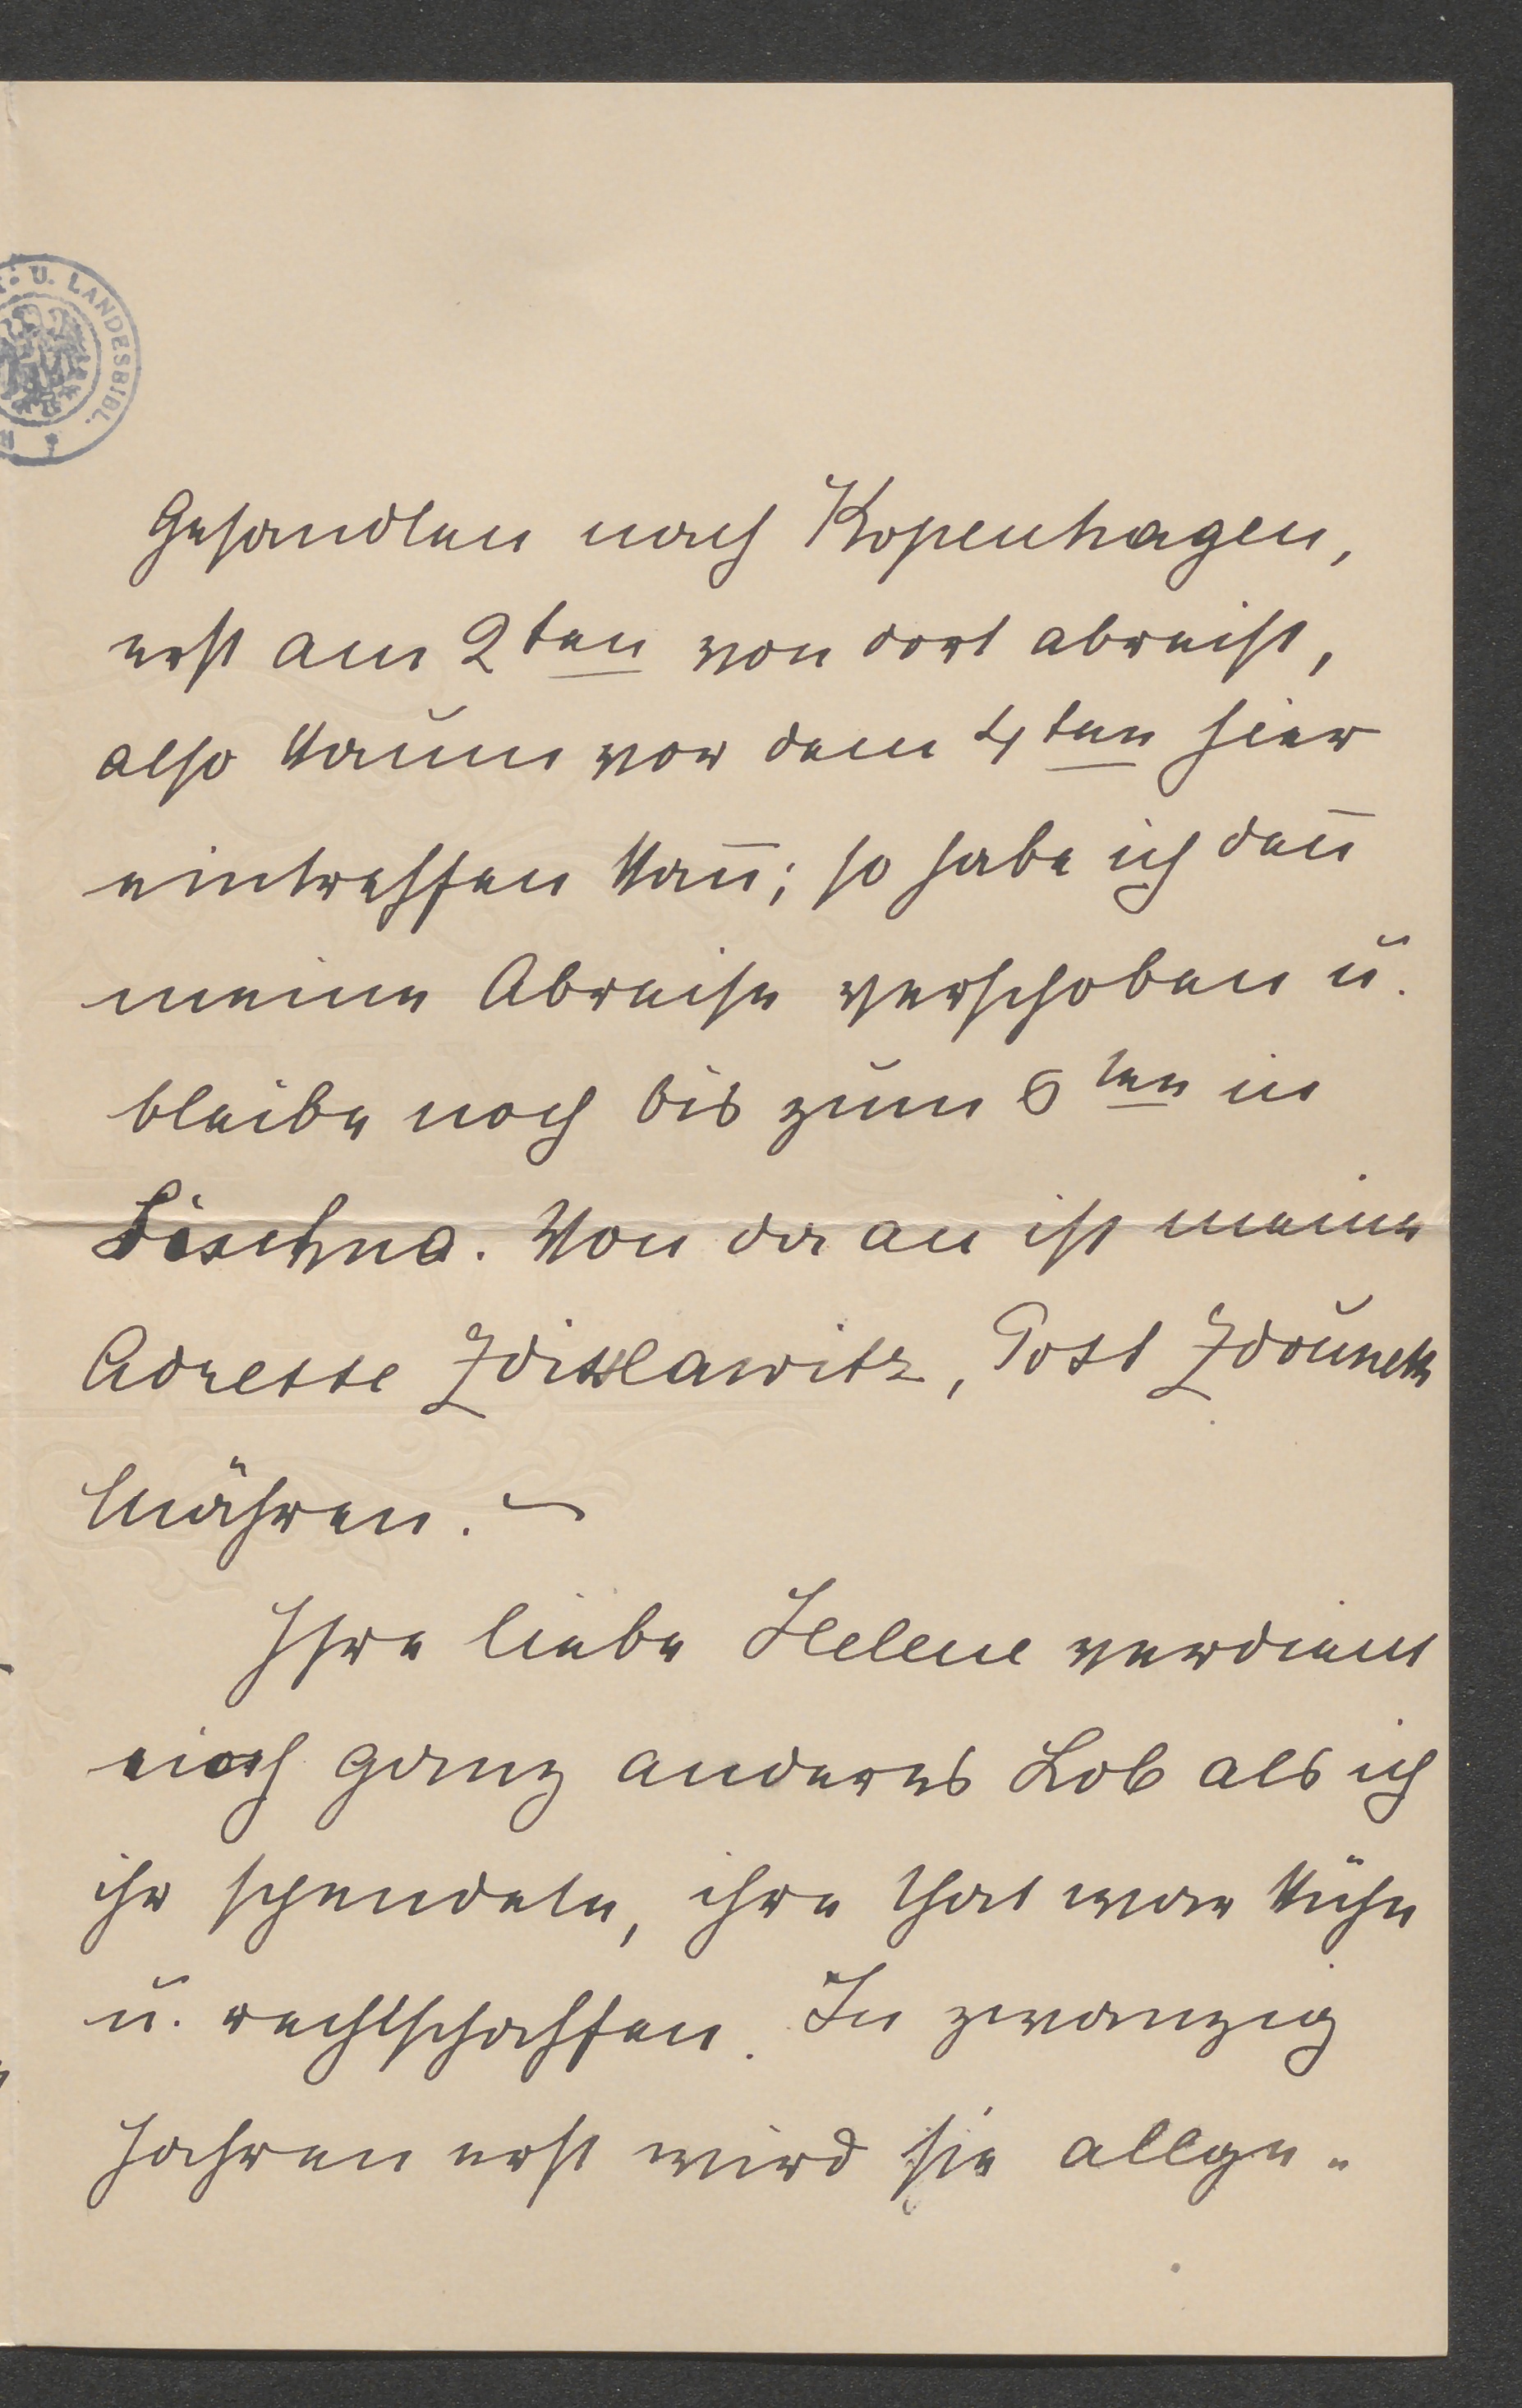 U. LANDESBIBL.
Gesandten nach Kopenhagen,
erst am 2ten von dort abreist,
also kaum vor dem 4ten hier
eintreffen kan̅; so habe ich den̅
meine Abreise verschoben u.
bleibe noch bis zum 6ten in
Löschna. Von da an ist meine
Adresse Zdislawitz, Post Zdounek
Mähren. –
Ihre liebe Helene verdient
noch ganz anderes Lob als ich
ihr spendete, ihre That war kühn
u. rechtschaffen. In zwanzig
Jahren erst wird sie allge-